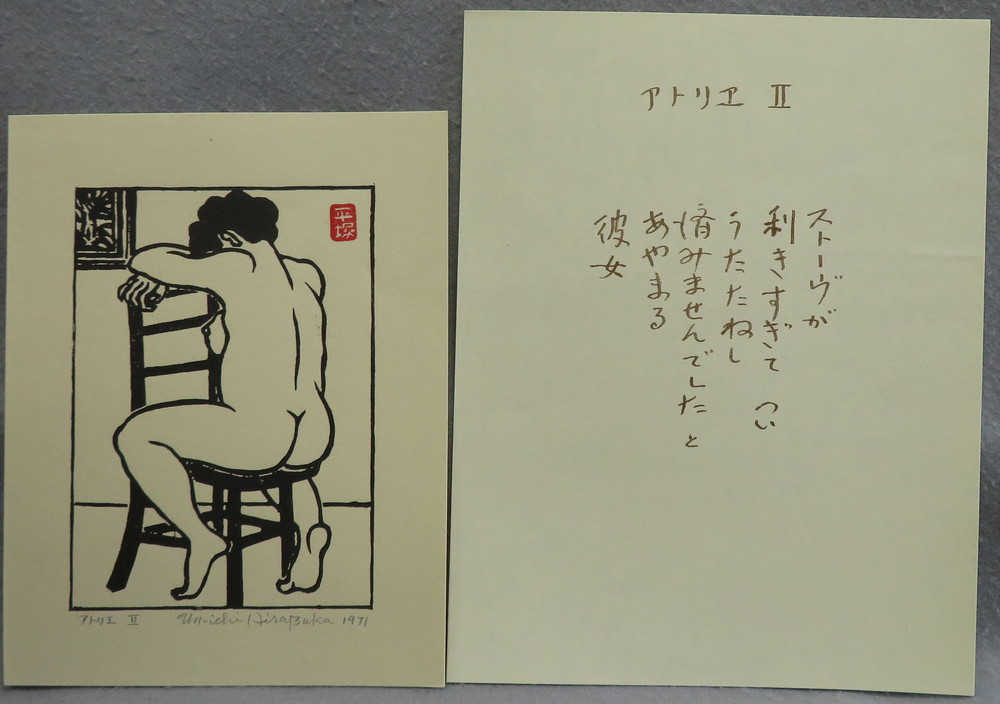 平塚
アトリエ II
Un-ichi Hiratsuka 1971
アトリヱ II
ストーヴが
利きすぎて つい
うたたねし
済みませんでしたと
あやまる
彼女